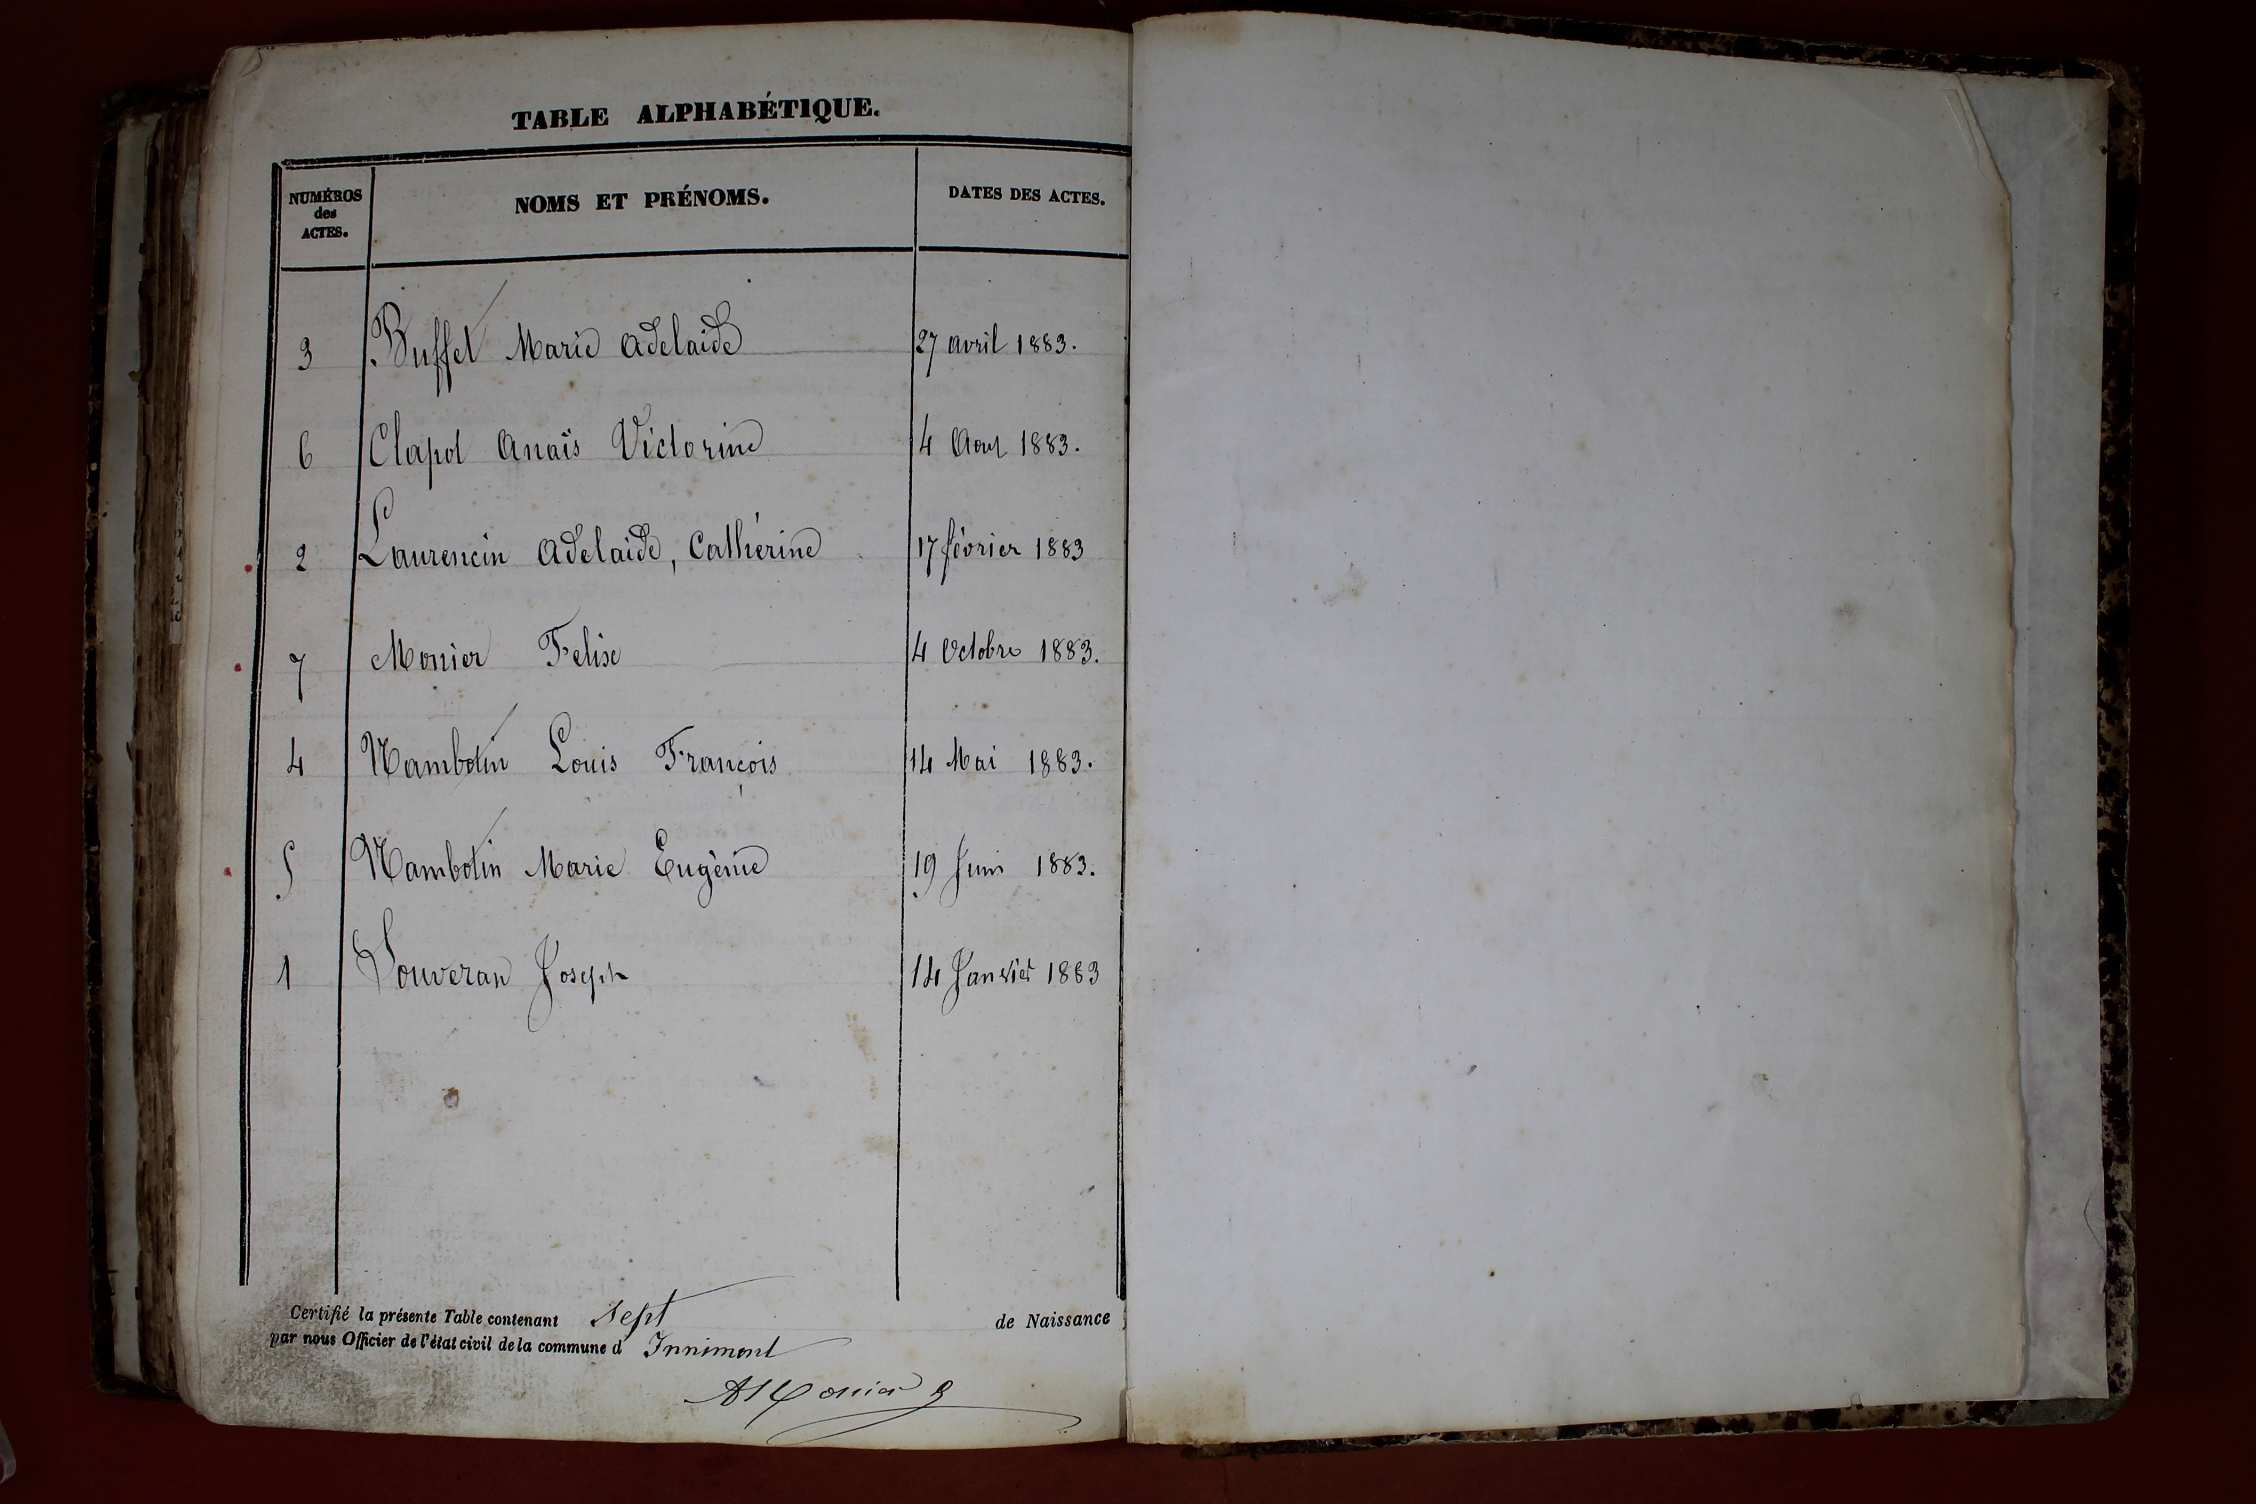 TABLE ALPHABÉTIQUE.
NUMÉROS des ACTES. NOMS ET PRÉNOMS. DATES DES ACTES.
3 Buffet Marie Adelaide 27 avril 1883.
6 Clapot Anaïs Victorine 4 Aout 1883.
2 Laurencin Adelaide, Cathérine 17 février 1883
7 Monier Felise 4 Octobre 1883.
4 Nambotin Louis François 14 Mai 1883.
5 Nambotin Marie Eugénie 19 Juin 1883.
1 Souveran Joseph 14 Janvier 1883
Certifié la présente Table contenant sept de Naissance
par nous Officier de l'état civil de la commune d Innimont